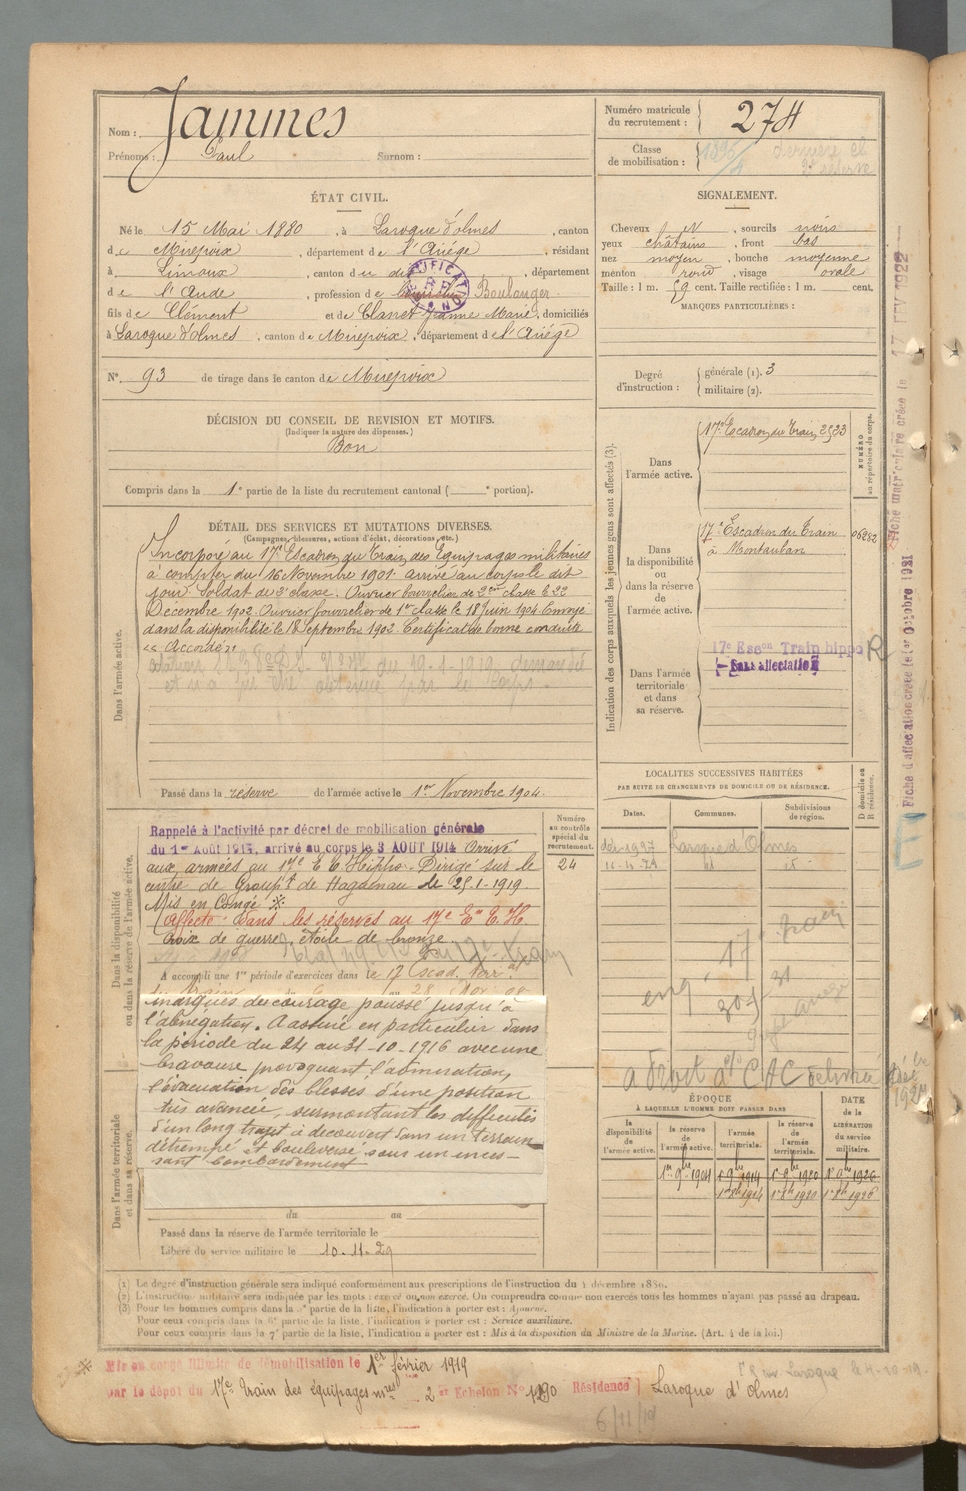 Nom : Jammes
Prénoms : Paul Surnom :
Numéro matricule
du recrutement : 274
Classe
de mobilisation : 1896
ÉTAT CIVIL.
Né le 15 Mai 1880, à Laroque d'olmes, canton
de Mirepoix, département de l'Ariége, résidant
à Limoux, canton du dit, département
de l'Aude, profession de Boulanger
fils de Clément et de Clanet Jeanne Marie, domiciliés
à Laroque d'olmes, canton de Mirepoix, département de l'Ariége
N° 93 de tirage dans le canton de Mirepoix
SIGNALEMENT.
Cheveux N, sourcils noirs
yeux châtains, front bas
nez moyen, bouche moyenne
menton rond, visage ovale
Taille : 1 m. 59 cent. Taille rectifiée : 1 m. cent.
MARQUES PARTICULIÈRES :
Degré
d'instruction :
générale (1). 3
militaire (2).
DÉCISION DU CONSEIL DE REVISION ET MOTIFS.
(Indiquer la nature des dispenses.)
Bon
Compris dans la 1e partie de la liste du recrutement cantonal ( e portion).
DÉTAIL DES SERVICES ET MUTATIONS DIVERSES.
(Campagnes, blessures, actions d'éclat, décorations, etc.)
Dans l'armée active.
Incorporé au 17e Escadron du Train des Equipages militaires
à compter du 16 Novembre 1901. arrivé au corps le dit
jour. Soldat de 2e classe. Ouvrier bourrelier de 2e classe le 22
Décembre 1902. Ouvrier bourrelier de 1re classe le 18 Juin 1904. Envoyé
dans la disponibilité le 18 Septembre 1902. Certificat de bonne conduite
"Accordé"
du 19-1-1919 demandé
et n'a pu être obtenue par le Corps
Passé dans la reserve de l'armée active le 1er Novembre 1904.
Indication des corps auxquels les jeunes gens sont affectés (3).
NUMÉRO
au répertoire du corps.
Dans
l'armée active.
17e Escadron du Train 2523
Dans
la disponibilité
ou
dans la réserve
de
l'armée active.
17e Escadron du Train
à Montauban
06282
Dans l'armée
territoriale
et dans
sa réserve.
17e Escon Train hippo R
Sans affectation
Fiche matriculaire créée le 17 FEV 1922
Fiche d'affectation créée le 1er Octobre 1921
Dans la disponibilité
ou dans la réserve de l'armée active.
Rappelé à l'activité par décret de mobilisation générale
du 1er Août 1914, arrivé au corps le 3 AOUT 1914 Arrivé
aux armées au 17e E T Hippo. Dirigé sur le
centre de Groupt de Hagdenau le 25-1-1919.
Mis en Congé *
Affecté dans les réserves au 17e En E. H.
Croix de guerre, étoile de bronze
A accompli une 1re période d'exercices dans le 17 Escad. Terr.al
marques de courage poussé jusqu'à
l'abnégation. A assuré en particulier dans
la période du 24 au 31-10-1916 avec une
bravoure provoquant l'admiration,
l'évacuation des blessés d'une position
très avancée, surmontant les difficultés
d'un long trajet à découvert dans un terrain
détrempé et bouleversé sous un inces-
sant bombardement
Dans l'armée territoriale
et dans sa réserve.
du au
Passé dans la réserve de l'armée territoriale le
Libéré du service militaire le 10-11-29
Numéro
au contrôle
spécial du
recrutement.
24
LOCALITES SUCCESSIVES HABITÉES
PAR SUITE DE CHANGEMENTS DE DOMICILE OU DE RÉSIDENCE.
Dates. Communes. Subdivisions
de région.
D domicile ou
R résidence.
Laroque d'Olmes
17e train
304
à CAC
ÉPOQUE
À LAQUELLE L'HOMME DOIT PASSER DANS
la
disponibilité
de
l'armée active.
la réserve
de
l'armée active.
l'armée
territoriale.
la réserve
de
l'armée
territoriale.
DATE
de la
LIBÉRATION
du service
militaire.
1er 9bre 1904 1er 9bre 1914 1er 9bre 1920 1er 9bre 1926
(1) Le degré d'instruction générale sera indiqué conformément aux prescriptions de l'instruction du 4 décembre 1889.
(2) L'instruction militaire sera indiquée par les mots : exercé ou non exercé. On comprendra comme non exercés tous les hommes n'ayant pas passé au drapeau.
(3) Pour les hommes compris dans la 5e partie de la liste, l'indication à porter est : Ajourné.
Pour ceux compris dans la 6e partie de la liste, l'indication à porter est : Service auxiliaire.
Pour ceux compris dans la 7e partie de la liste, l'indication à porter est : Mis à la disposition du Ministre de la Marine. (Art. 4 de la loi.)
* Mis en congé illimité de démobilisation le 1er février 1919
par le dépôt du 17e Train des équipages mres 2e Echelon N° 1290 Résidence Laroque d'olmes
6/11/19